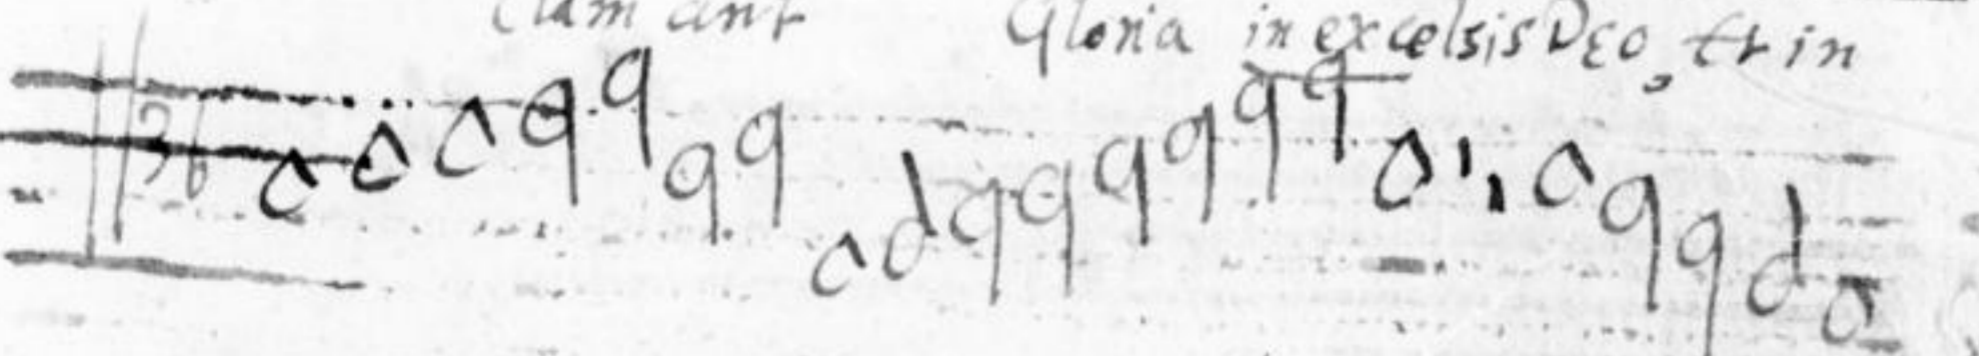 Clamant Gloria in excelsis Deo, et in